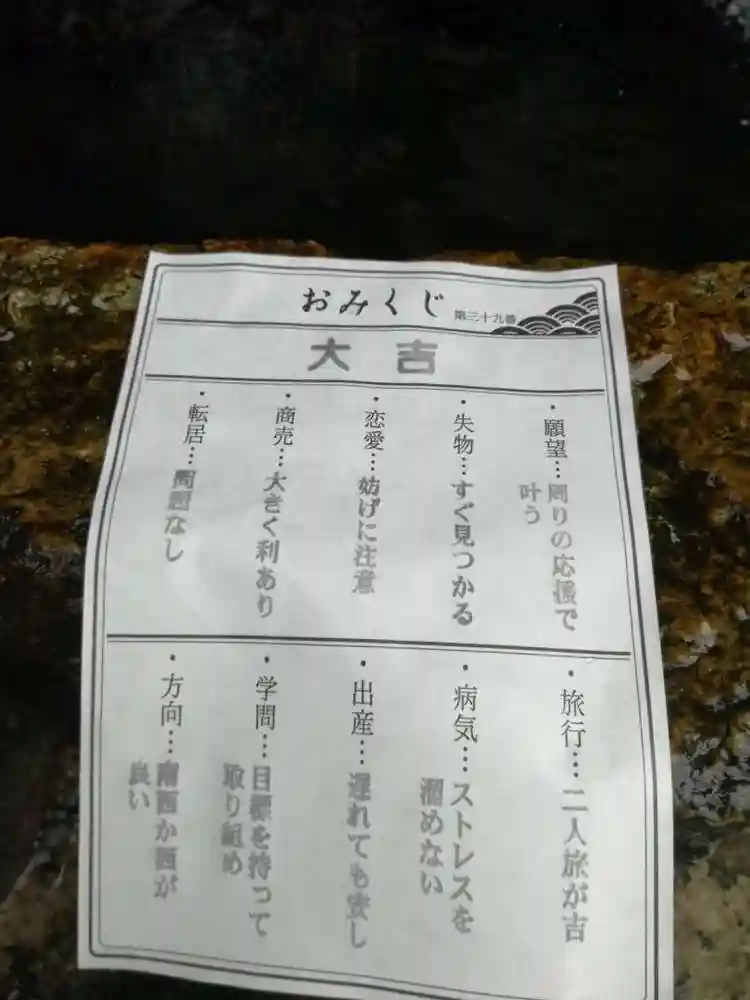 おみくじ
第三十九番
大吉
・願望…周りの応援で
叶う
・失物…すぐ見つかる
・恋愛…妨げに注意
・商売…大きく利あり
・転居…問題なし
・旅行…二人旅が吉
・病気…ストレスを
溜めない
・出産…遅れても安し
・学問…目標を持って
取り組め
・方向…南西か西が
良い